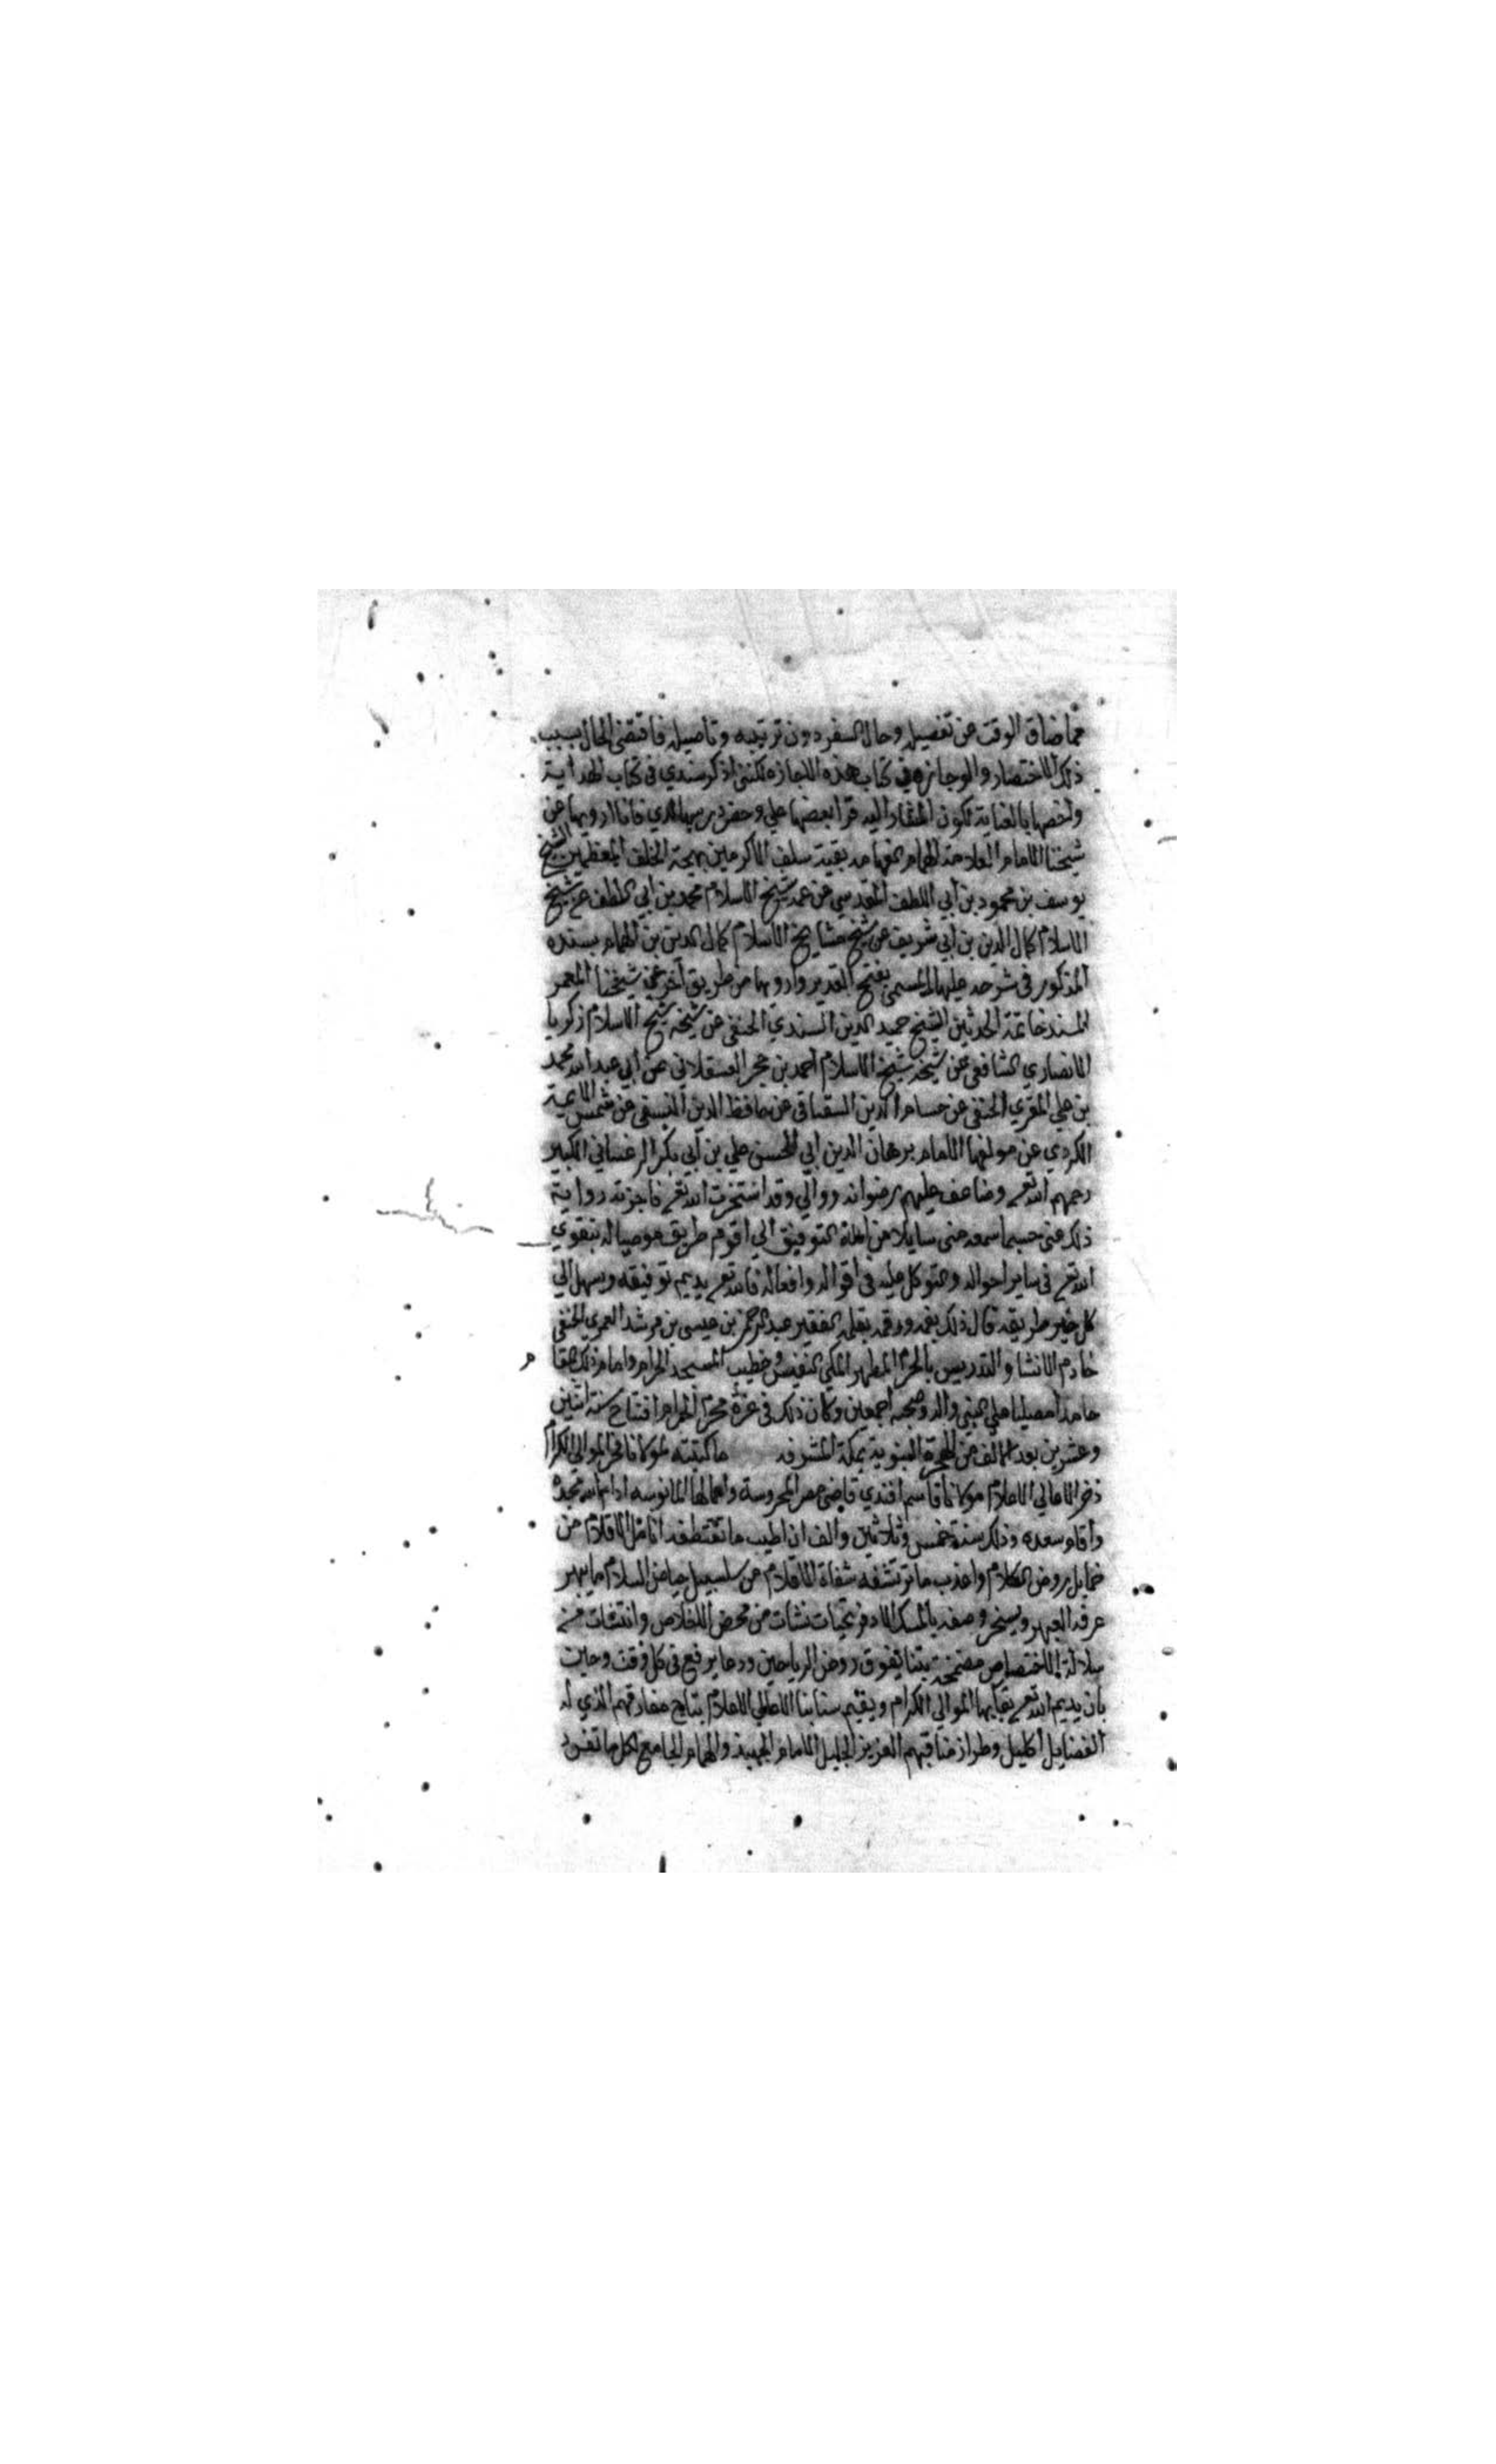 مما ضاق الوقت عن تفصيله وحال السفر دون ترتيبه وتاصيله فاقتضى الحال بسبب
ذلك الاختصار والوجازه في كتاب هذه الاجازه لكنني اذكر سندي في كتاب الهداية
واخصها بالعناية لكون المشار اليه قرا بعضها علي وحضر درسها لدي فانا ارويها عن
شيخنا الامام العلامة الهمام الفهامه بقية سلف الاكرمين بهجة الخلف المعظمين الشيخ
يوسف بن محمود بن ابي اللطف المقدسي عن عمه شيخ الاسلام محمد بن ابي اللطف عن شيخ
الاسلام كمال الدين بن ابي شريف عن شيخ مشايخ الاسلام كمال الدين بن الهمام بسنده
المذكور في شرحه عليها المسمى بفتح القدير وارويها من طريق آخر عن شيخنا المعمر
المسند خاتمة المحدثين الشيخ حميد الدين السندي الحنفي عن شيخه شيخ الاسلام زكريا
الانصاري الشافعي عن شيخه شيخ الاسلام احمد بن حجر العسقلاني عن ابي عبد الله محمد
بن علي المقري الحنفي عن حسام الدين السقناقي عن حافظ الدين النسفي عن شمس الايمة
الكردي عن مولفها الامام برهان الدين ابي الحسن علي بن ابي بكر المرغيناني الكبير
رحمهم الله تعالى وضاعف عليهم رضوانه ووالي وقد استخرت الله تعالى فاجزته رواية
ذلك عني حسبما سمعه مني سايلا من الله التوفيق الي اقوم طريق موصيا له بتقوي
الله تعالى في ساير احواله والتوكل عليه في اقواله وافعاله فالله تعالى يديم توفيقه ويسهل الي
كل خير طريقه قال ذلك بفمه ورقمه بقلمه الفقير عبد الرحمن بن عيسى بن مرشد العمري الحنفي
خادم الانشا والتدريس بالحرم المطهر المكي النفيس وخطيب المسجد الحرام وامام ذلك المقام
حامدا مصليا علي النبي واله وصحبه اجمعين وكان ذلك في غرة محرم الحرام افتتاح سنة اثنين
وعشرين بعد الالف من الهجرة النبوية بمكة المشرفه ما كتبته لمولانا فخر الموالي الكرام
ذخر الاعالي الاعلام مولانا قاسم افندي قاضي مصر المحروسة واعمالها المانوسه ادام الله مجده
واقام سعده وذلك سنة خمس وثلاثين والف ان اطيب ما تقتطفه انامل الاقلام من
خمايل روض الكلام واعذب ما ترتشفه شفاة الاقلام من سلسبيل حياض السلام ما يبهر
عرفه العبهر ويسخر وصفه بالمسك الاذفر تحيات نشات من محض الاخلاص وانتشات من
سلالة الاختصاص مضمخة بثنا يفوق روض الرياحين ودعا يرفع في كل وقت وحين
بان يديم الله تعالى بقايها الموالي الكرام ويقيم الاعالي الاعلام بتاج مفارقهم الذي له
الفضايل أكليل وطراز مناقبهم العزيز الجليل الامام الجهبذ والهمام الجامع لكل ما تفرد